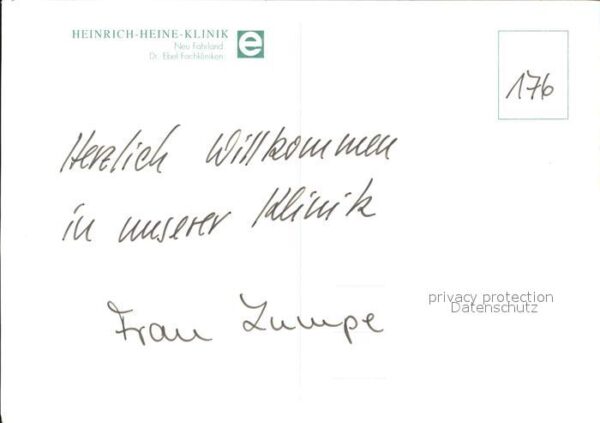 HEINRICH-HEINE-KLINIK
Neu Fahrland
Dr. Ebel Fachkliniken
e
176
Herzlich Willkommen
in unserer Klinik
Frau Zumpe
privacy protection
Datenschutz